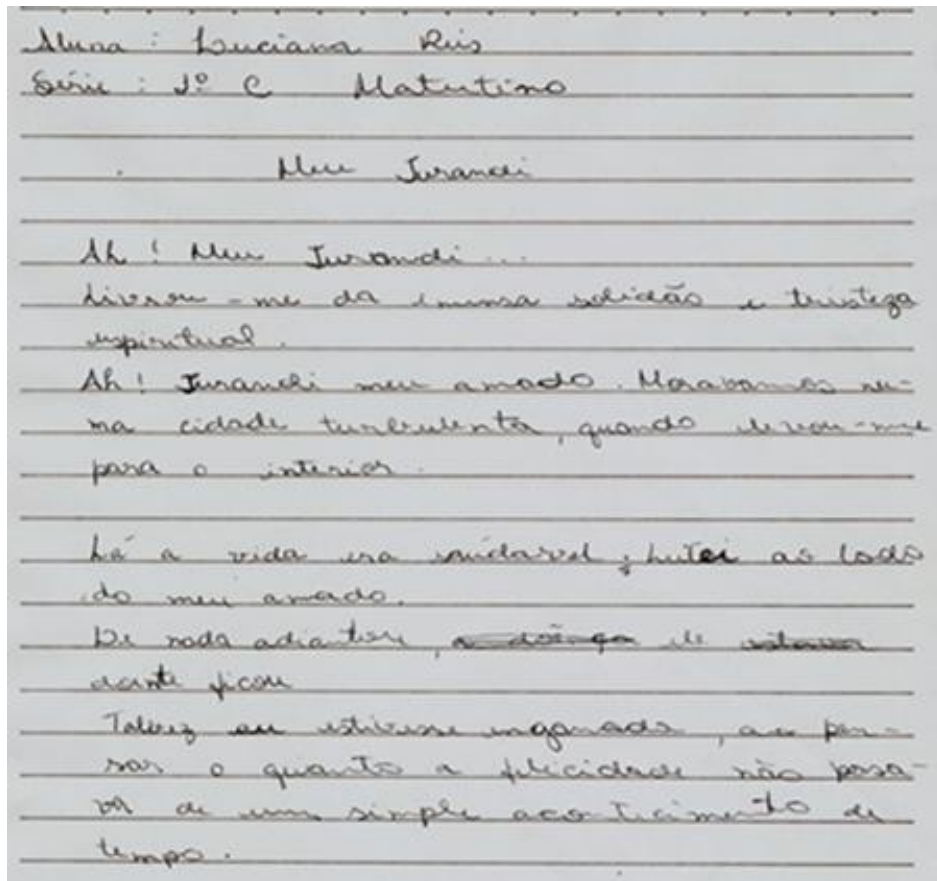 Aluna : Luciana Reis
Série : 1º C Matutino
Meu Jurandi
Ah ! Meu Jurandi ...
Livrou-me da imensa solidão e tristeza
espiritual.
Ah ! Jurandi meu amado. Moravamos nu-
ma cidade turbulenta, quando levou-me
para o interior.
Lá a vida era saudavel ; Lutei ao lado
do meu amado.
De nada adiantou, a doênça ele
doente ficou
Talvez eu estivesse enganada, ao pen-
sar o quanto a felicidade não pasa-
va de um simple acontecimento de
tempo.